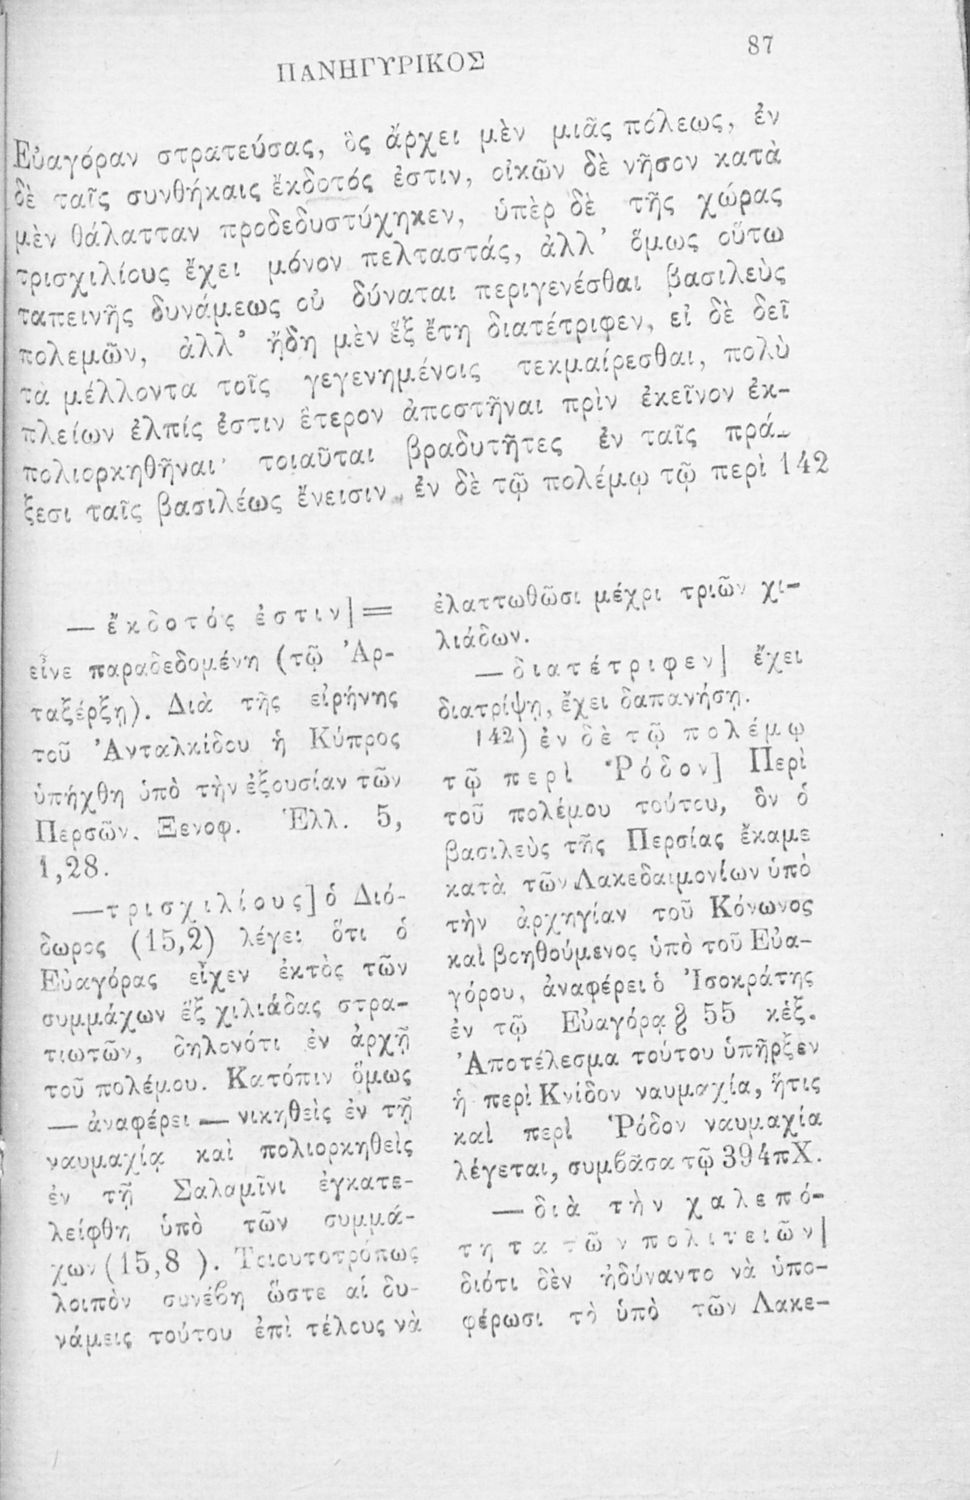 87
ΠΑΝΗΓΥΡΙΚΟΣ
Εὐαγόραν στρατεύσας, ὃς ἄρχει μὲν μιᾶς πόλεως, ἐν
δὲ ταῖς συνθήκαις ἔκδοτός ἐστιν, οἰκῶν δὲ νῆσον κατὰ
μὲν θάλατταν προδεδυστύχηκεν, ὑπὲρ δὲ τῆς χώρας
τρισχιλίους ἔχει μόνον πελταστάς, ἀλλ' ὅμως οὕτω
ταπεινῆς δυνάμεως οὐ δύναται περιγενέσθαι βασιλεὺς
πολεμῶν, ἀλλ' ἤδη μὲν ἓξ ἔτη διατέτριφεν, εἰ δὲ δεῖ
τὰ μέλλοντα τοῖς γεγενημένοις τεκμαίρεσθαι, πολὺ
πλείων ἐλπίς ἐστιν ἕτερον ἀποστῆναι πρὶν ἐκεῖνον ἐκ-
πολιορκηθῆναι· τοιαῦται βραδυτῆτες ἐν ταῖς πρά-
ξεσι ταῖς βασιλέως ἔνεισιν. ἐν δὲ τῷ πολέμῳ τῷ περὶ 142
— ἔκδοτός ἐστιν] =
εἶνε παραδεδομένη (τῷ Ἀρ-
ταξέρξῃ). Διὰ τῆς εἰρήνης
τοῦ Ἀνταλκίδου ἡ Κύπρος
ὑπήχθη ὑπὸ τὴν ἐξουσίαν τῶν
Περσῶν. Ξενοφ. Ἑλλ. 5,
1,28.
—τρισχιλίους] ὁ Διό-
δωρος (15,2) λέγει ὅτι ὁ
Εὐαγόρας εἶχεν ἐκτὸς τῶν
συμμάχων ἓξ χιλιάδας στρα-
τιωτῶν, δηλονότι ἐν ἀρχῇ
τοῦ πολέμου. Κατόπιν ὅμως
— ἀναφέρει — νικηθεὶς ἐν τῇ
ναυμαχίᾳ καὶ πολιορκηθεὶς
ἐν τῇ Σαλαμῖνι ἐγκατε-
λείφθη ὑπὸ τῶν συμμά-
χων (15,8 ). Τοιουτοτρόπως
λοιπὸν συνέβη ὥστε αἱ δυ-
νάμεις τούτου ἐπὶ τέλους νὰ
ἐλαττωθῶσι μέχρι τριῶν χι-
λιάδων.
— διατέτριφεν] ἔχει
διατρίψῃ, ἔχει δαπανήσῃ.
142) ἐν δὲ τῷ πολέμῳ
τῷ περὶ Ῥόδον] Περὶ
τοῦ πολέμου τούτου, ὃν ὁ
βασιλεὺς τῆς Περσίας ἔκαμε
κατὰ τῶν Λακεδαιμονίων ὑπὸ
τὴν ἀρχηγίαν τοῦ Κόνωνος
καὶ βοηθούμενος ὑπὸ τοῦ Εὐα-
γόρου, ἀναφέρει ὁ Ἰσοκράτης
ἐν τῷ Εὐαγόρᾳ § 55 κἑξ.
Ἀποτέλεσμα τούτου ὑπῆρξεν
ἡ περὶ Κνίδον ναυμαχία, ἥτις
καὶ περὶ Ῥόδον ναυμαχία
λέγεται, συμβᾶσα τῷ 394πΧ.
— διὰ τὴν χαλεπό-
τητα τῶν πολιτειῶν]
διότι δὲν ἠδύναντο νὰ ὑπο-
φέρωσι τὸ ὑπὸ τῶν Λακε-